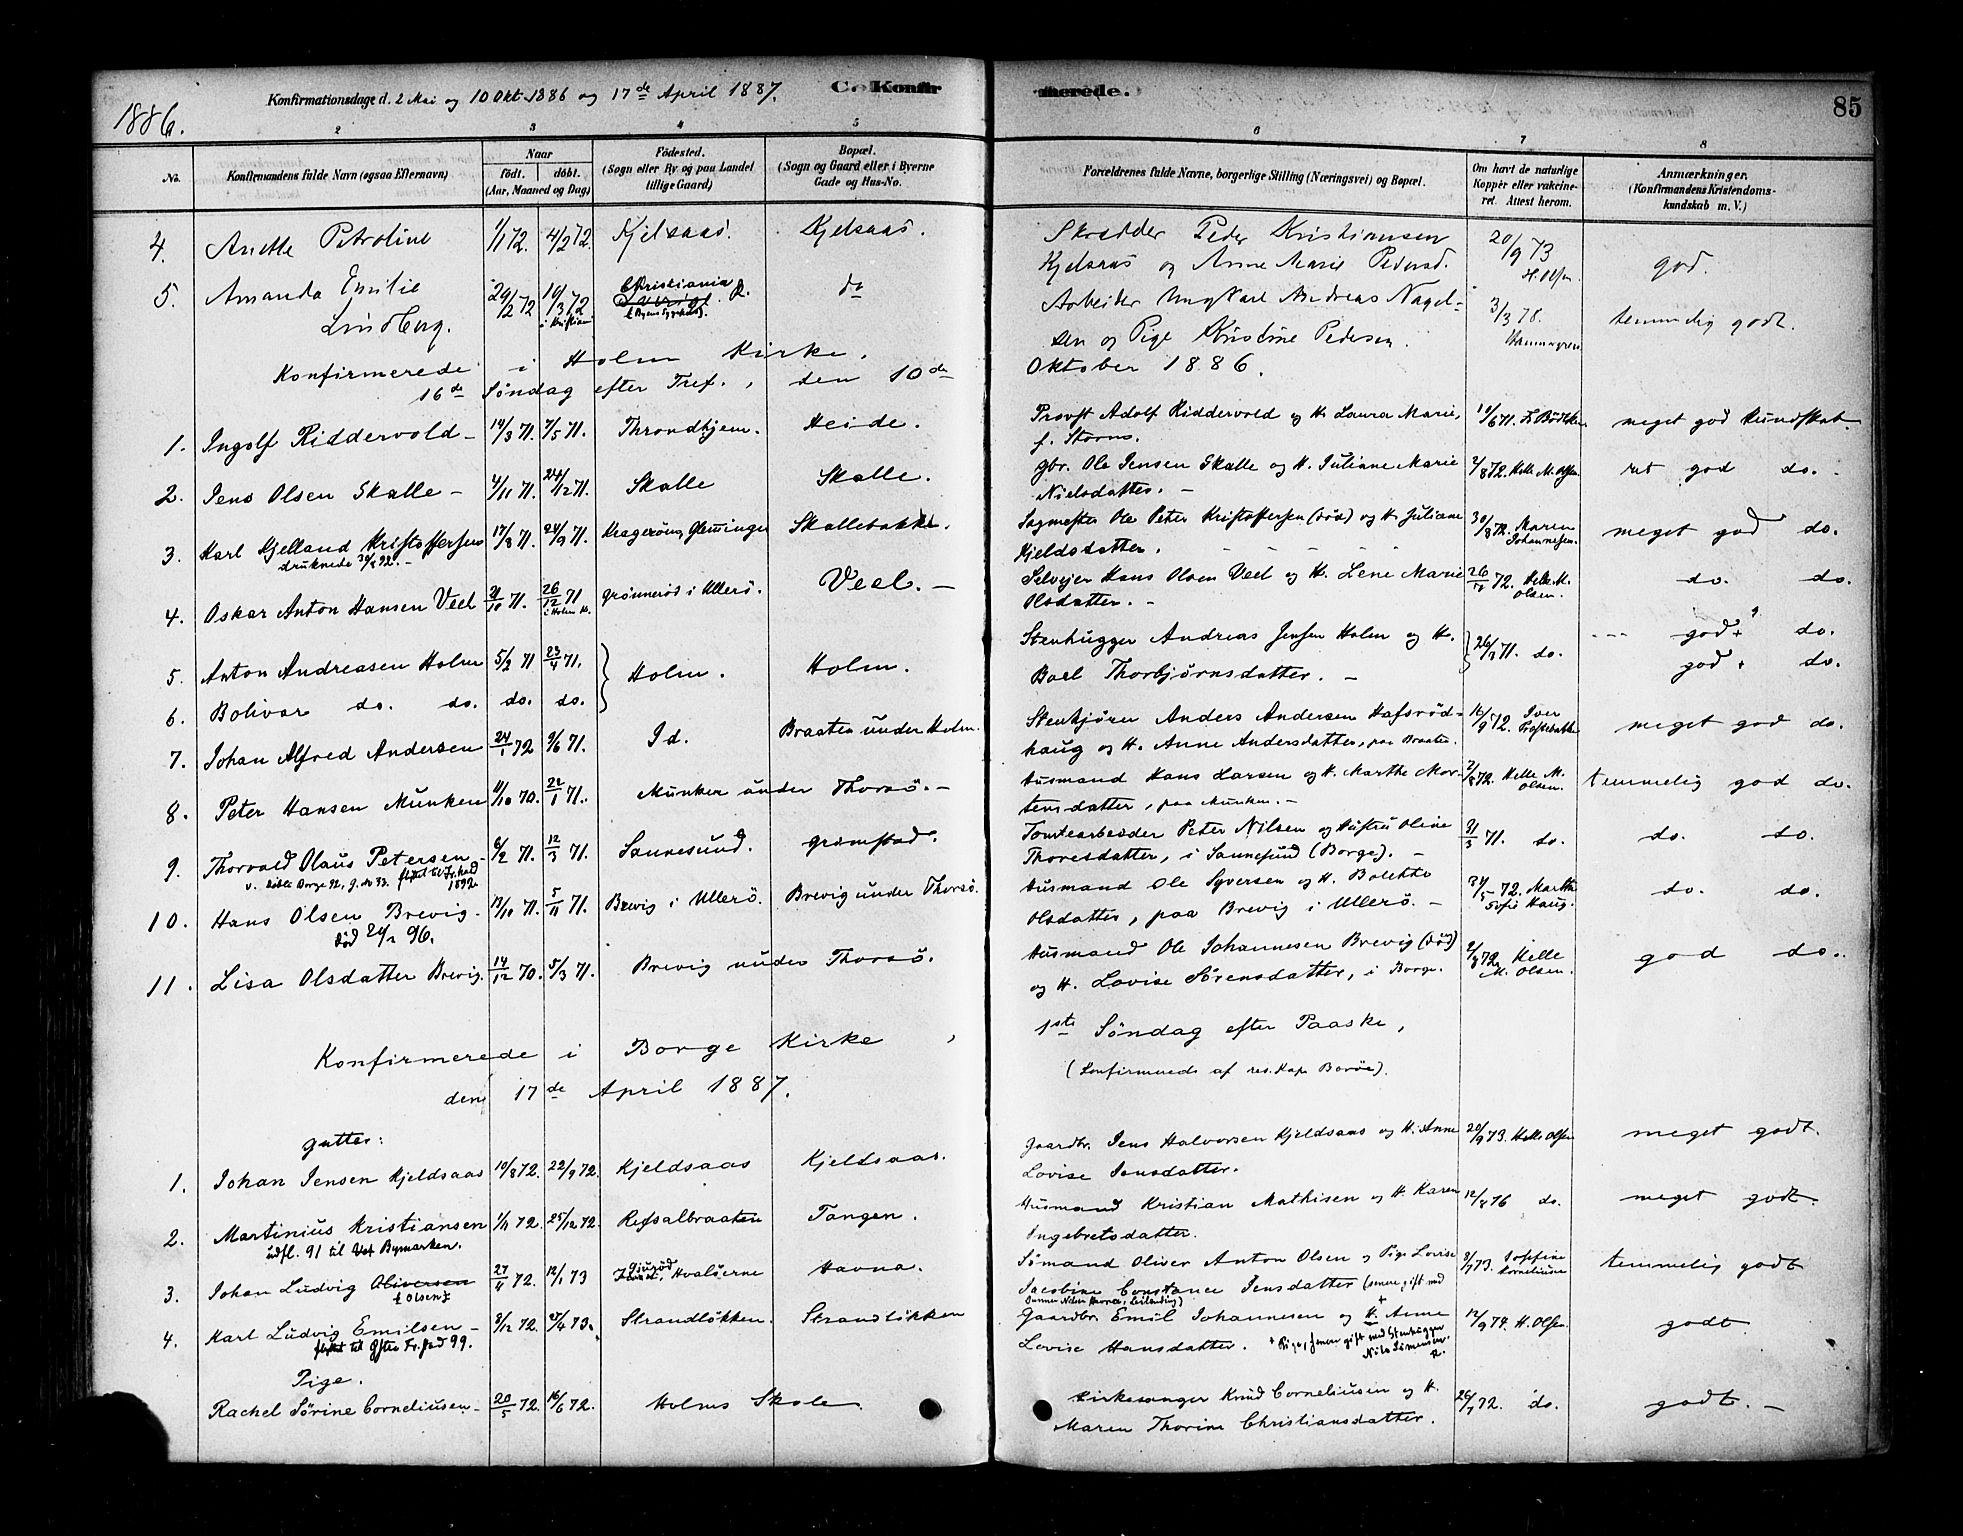 Konfirmationsdage d. 2 Mai og 10 Okt. 1886 og 17de April 1887. C. Konfirmerede. 85
1886.
2 3 4 5 6 7 8
No. Konfirmandens fulde Navn (ogsaa Efternavn) Naar født. døbt. (Aar, Maaned og Dag) Fødested. (Sogn eller By og paa Landet tillige Gaard) Bopæl. (Sogn og Gaard eller i Byerne Gade og Hus-No. Forældrenes fulde Navne, borgerlige Stilling (Næringsvei) og Bopæl. Om havt de naturlige Kopper eller vakcineret. Attest herom. Anmærkninger. (Konfirmandens Kristendomskundskab m. V.)
4. Anette Petroline 1/1 72. 4/2 72. Kjelsaas. Kjelsaas. Skrædder Peder Kristiansen 20/9 73
Kjelsaas og Anne Marie Pedersd. H. Olsen god.
5. Amanda Emilie 29/2 72 10/3 72 Christiania do Arbeider Ungkarl Andreas Nagel- 3/3 78.
Lindberg. i Kristiania sen og Pige Kristine Pedersen. temmelig godt.
Konfirmerede i Holm Kirke. Oktober 1886.
16de Søndag efter Tref., den 10de
1. Ingolf Riddervold - 14/3 71. 7/5 71. Throndhjem. Heide. Provst Adolf Riddervold og H. Laura Marie, 10/6 71. meget god Kundskab.
f. Storm.
2. Jens Olsen Skalle - 4/11 71. 24/12 71. Skalle Skalle. gbr. Ole Jensen Skalle og H. Juliane Marie 2/8 72. Helle M. Olsen ret god do.
Nielsdatter. -
3. Karl Kjelland Kristoffersen 17/8 71. 24/9 71. Kragerøen, Glemminge Skallebakke. Sagmester Ole Peter Kristoffersen (død) og H. Juliane 30/8 72. Maren Johannesen. meget god do.
druknede 30/8 92. - Kjeldsdatter.
4. Oskar Anton Hansen Veel 21/10 71. 26/12 71 i Holm K. Grønnerød i Ullerø. Veel. - Selvejer Hans Olsen Veel og H. Lene Marie 26/ 72. Helle M. Olsen. do. do.
Olsdatter. -
5. Anton Andreasen Holm 5/2 71 23/4 71. Holm. Holm. Stenhugger Andreas Jensen Holm og H. 26/ 71. do. god + do.
6. Bolivar do. do. do. do. Boel Thorbjørnsdatter. - god + do.
7. Johan Alfred Andersen 24/1 72 9/6 71. Id. Braaten under Holm. Stenkjører Anders Andersen Hafsrød- 16/9 72. Iver meget god do.
haug og H. Anne Andersdatter, paa Braaten.
8. Peter Hansen Munken 11/10 70. 22/1 71. Munken under Thorsø. - Husmand Hans Larsen og H. Marthe Mor- 2/8 72. Helle M. Olsen. temmelig god do.
tensdatter, paa Munken. -
9. Thorvald Olaus Petersen - 6/2 71. 12/3 71. Sannesund. Grømstad. Tomtearbeider Peter Nilsen og Hustru Oline 31/3 71. do. do. do.
Thoresdatter, i Sannesund (Borge). -
10. Hans Olsen Brevig. 13/10 71. 5/11 71. Brevig i Ullerø. Brevig under Thorsø. Husmand Ole Syversen og H. Bolette 31/5 - 72. Marthe Sofie Haug. do. do.
død 24/2 96. Olsdatter, paa Brevig i Ullerø. -
11. Lisa Olsdatter Brevig. 14/12 70. 5/3 71. Brevig under Thorsø. Husmand Ole Johannesen Brevig (død) 2/8 72 Helle M. Olsen. god do.
og H. Lovise Sørensdatter, i Borge.
Konfirmerede i Borge Kirke, 1ste Søndag efter Paaske,
den 17de April 1887. (Konfirmerede af res. Kap. Borøe).
Gutter:
1. Johan Jensen Kjeldsaas 10/8 72. 22/9 72. Kjeldsaas Kjeldsaas. Gaardbr. Jens Halvorsen Kjeldsaas og H. Anne 20/9 73. Helle Olsen meget godt.
Lovise Jensdatter.
2. Martinius Kristiansen 1/11 72. 25/12 72. Refsalbraaten Tangen. Husmand Kristian Mathisen og H. Karen 12/8 76 do. meget godt.
udfl. 91 til Bymarken. Ingebretsdatter.
3. Johan Ludvig Oliversen 27/4 72. 12/1 73 Hvaløerne Havna. Sømand Oliver Anton Olsen og Pige Lovise 3/7 73. Josefine Korneliusen temmelig godt
Olsen Jacobine Constance Jensdatter (senere gift med
4. Karl Ludvig Emilsen - 8/12 72. 25/4 73. Strandløkken. Strandløkken Gaardbr. Emil Johannesen og H. Anne 12/9 74. H. Olsen. godt
flyttet til Østre Fr.stad 99. Lovise Hansdatter. + Pige, senere gift med Stenhugger Nils Simensen
Pige.
Rachel Sørine Corneliusen - 20/5 72. 16/6 72. Holms Skole Kirkesanger Knud Corneliusen og H. 26/7 72. do. godt. -
Maren Thorine Christiansdatter.